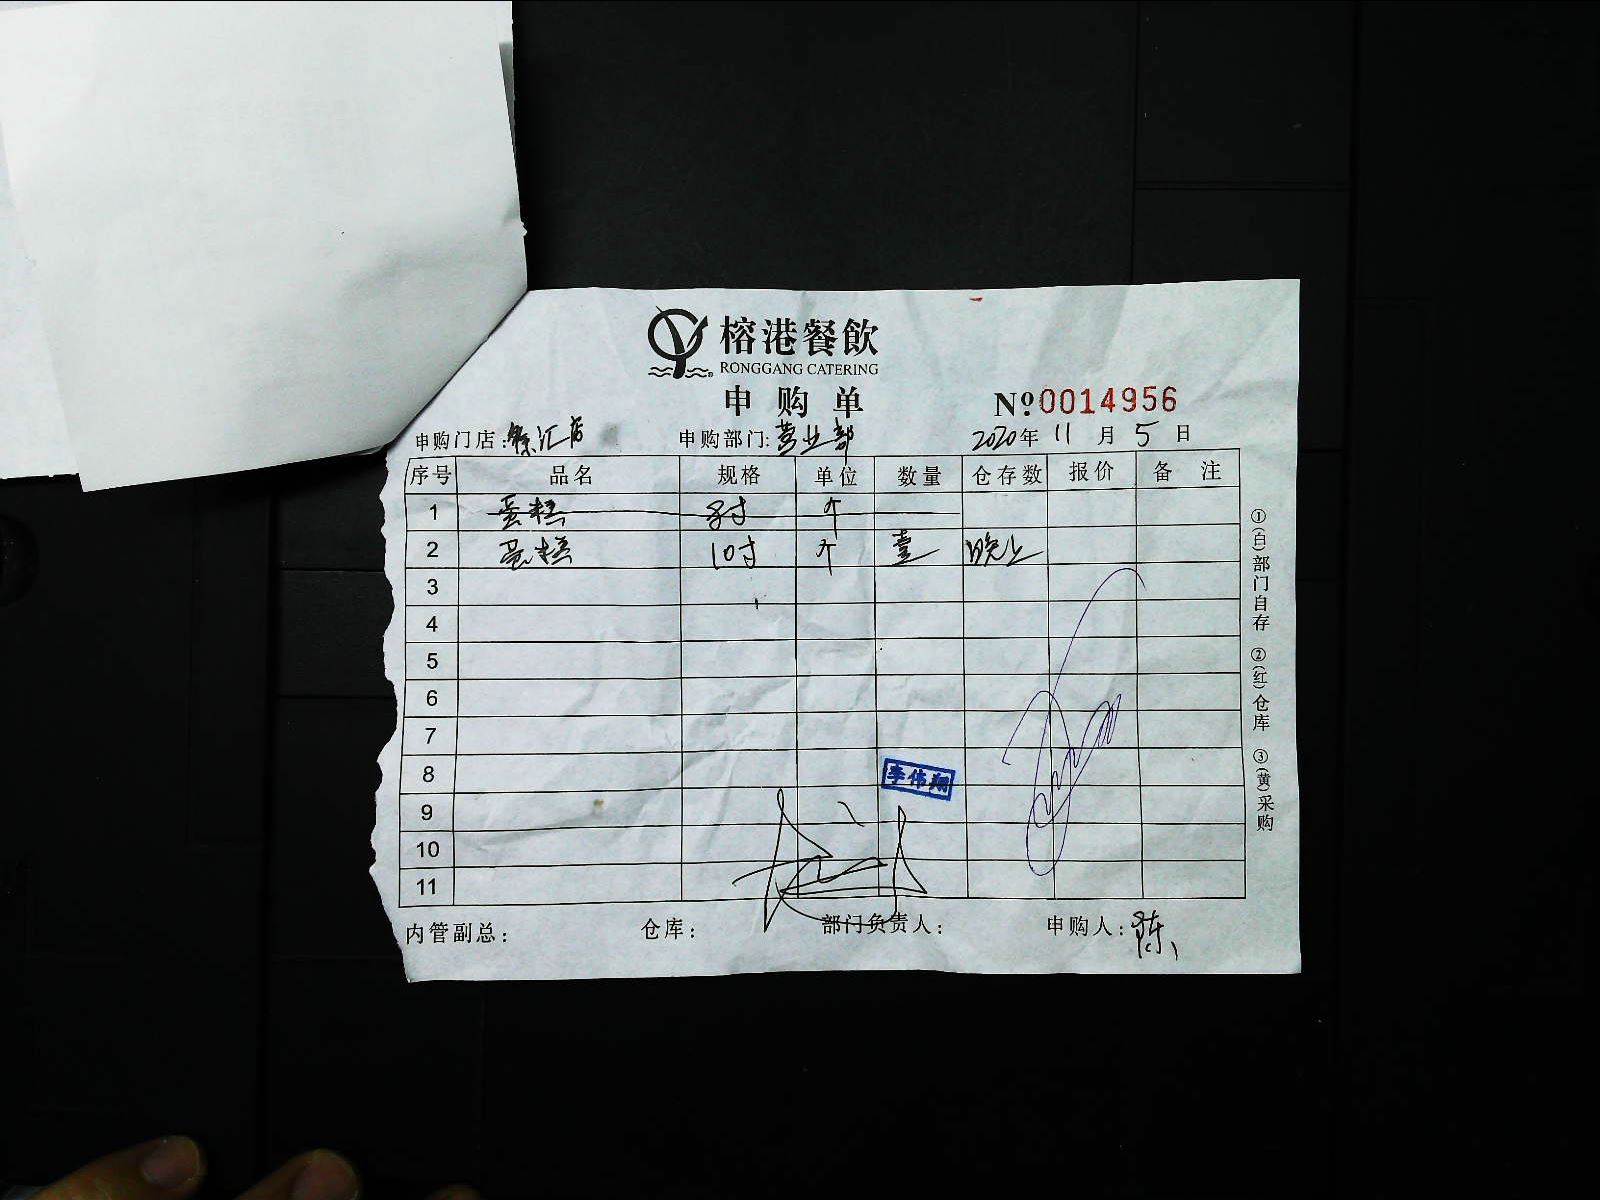 榕港餐飲
RONGGANG CATERING
申购单 Nº 0014956
申购门店:徐汇店 申购部门:营业部 2020年11月5日
序号 品名 规格 单位 数量 仓存数 报价 备注
1 蛋糕 8寸 个
2 蛋糕 10寸 个 壹 晚上
3
4
5
6
7
8 李伟翔
9
10
11
内管副总: 仓库: 部门负责人: 申购人:陈
①(白)部门自存 ②(红)仓库 ③(黄)采购